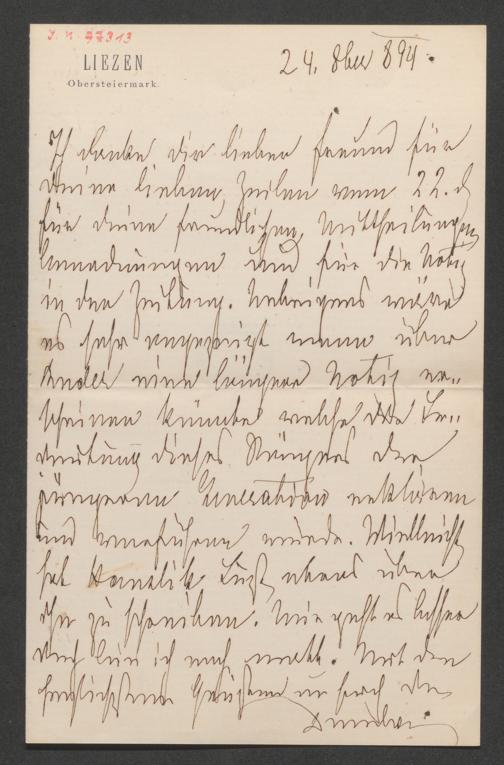 J. N. 97313
LIEZEN
Obersteiermark.
24. 8ber 894.
Ich danke dir lieber Freund für
deine lieben Zeilen vom 22. d
für deine freundlichen Mittheilungen
und für die Notiz
in der Zeitung. Uebrigens wäre
es sehr angezeigt wenn über
Ander eine längere Notiz er-
scheinen könnte welche die Be-
deutung dieses Sängers der
jüngeren Generation erklären
und vorführen würde. Vielleicht
hat Hanslik Lust etwas über
ihn zu schreiben. Mir geht es besser
doch bin ich noch matt. Mit den
herzlichsten Grüßen